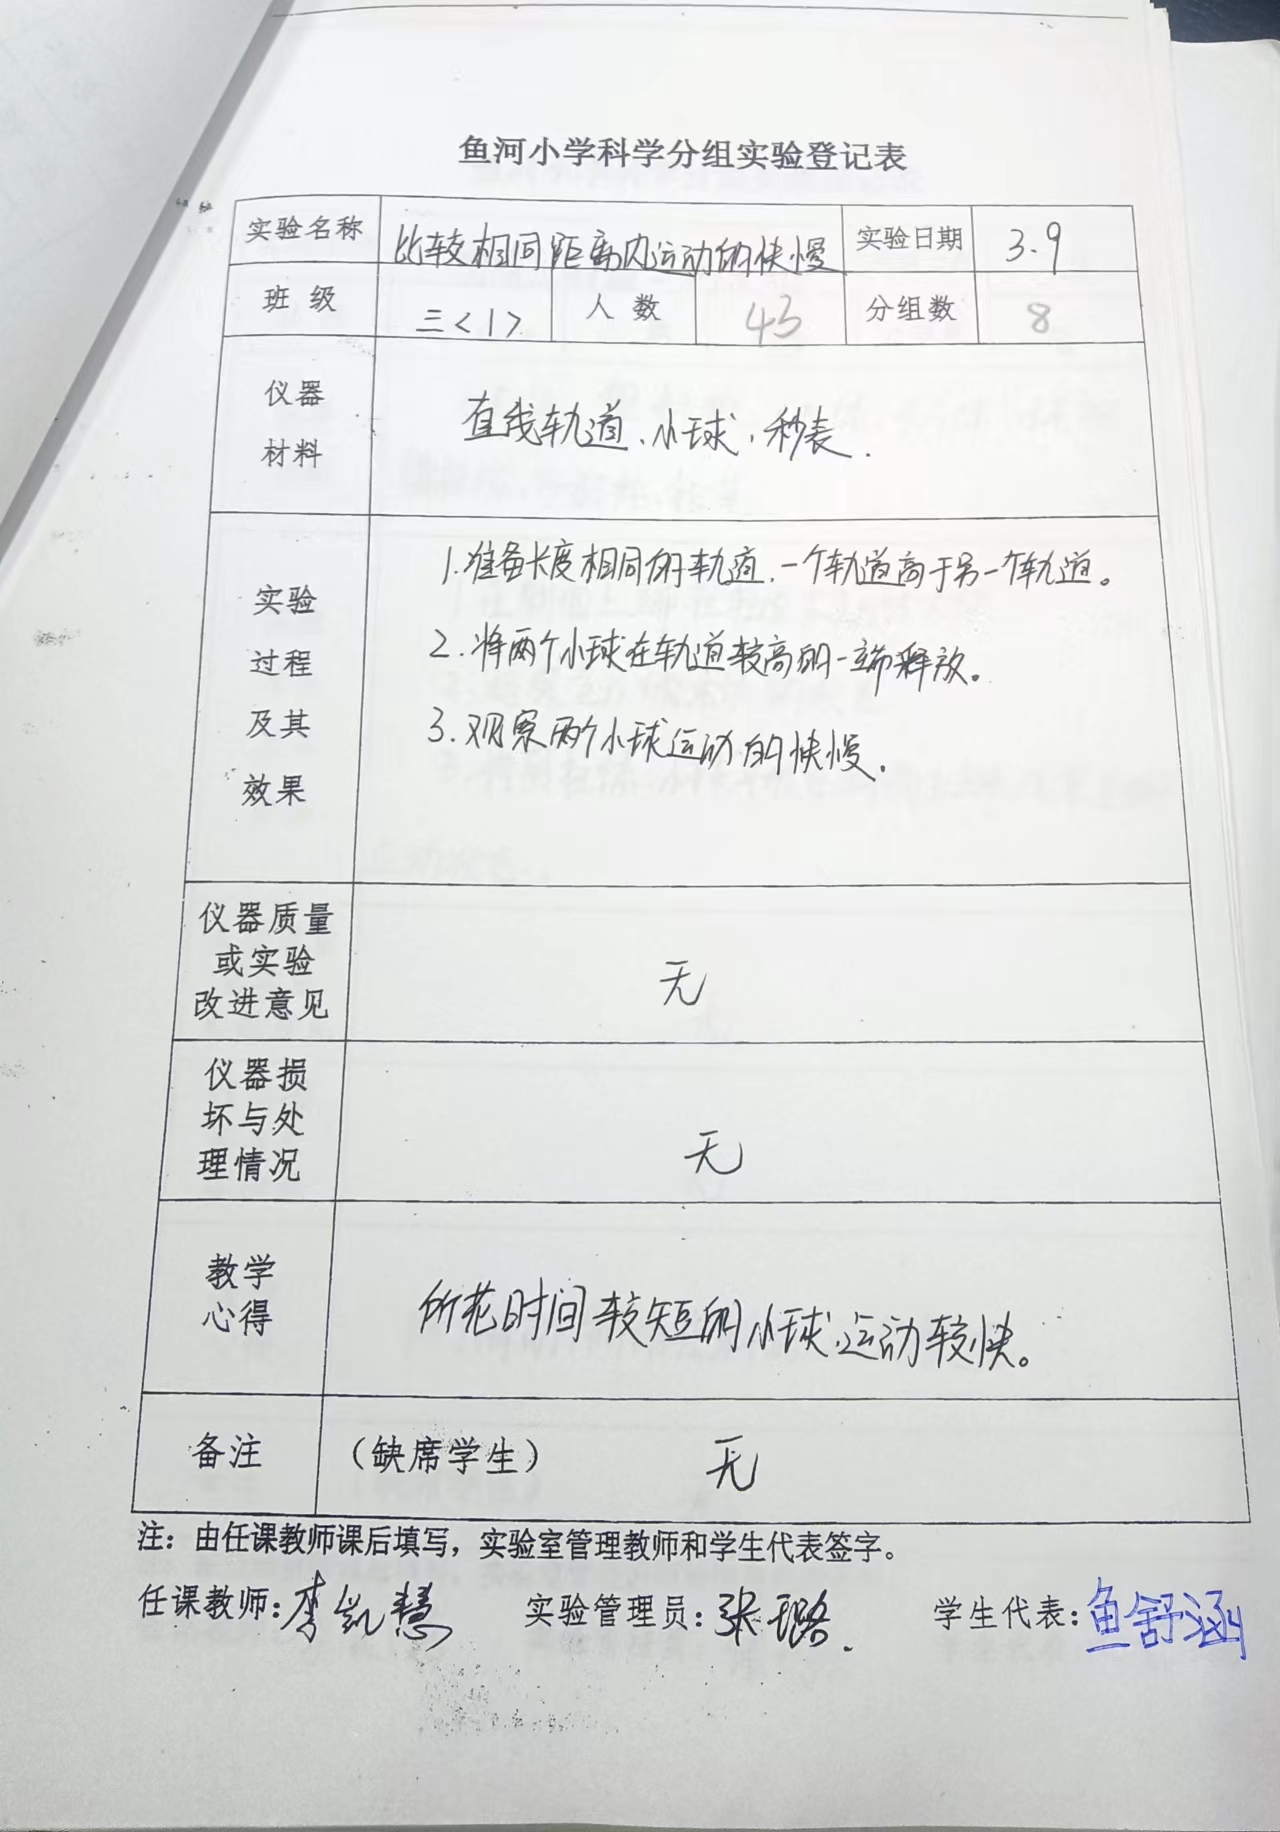 鱼河小学科学分组实验登记表
实验名称 比较相同距离内运动的快慢 实验日期 3.9
班级 三<1> 人数 43 分组数 8
仪器
材料
直线轨道、小球、秒表.
实验
过程
及其
效果
1.准备长度相同的轨道,一个轨道高于另一个轨道。
2.将两个小球在轨道较高的一端释放。
3.观察两个小球运动的快慢.
仪器质量
或实验
改进意见
无
仪器损
坏与处
理情况
无
教学
心得
所花时间较短的小球运动较快。
备注 (缺席学生) 无
注:由任课教师课后填写,实验室管理教师和学生代表签字。
任课教师:李凯慧 实验管理员:张璐. 学生代表:鱼舒涵